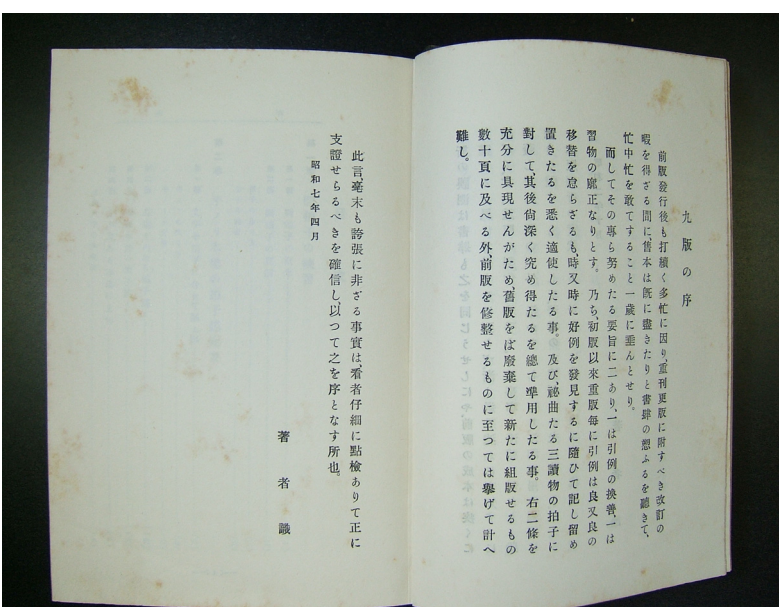 九版の序
前版發行後も打續く多忙に因り、重刊更版に附すべき改訂の
暇を得ざる間に、舊本は旣に盡きたりと書肆の愬ふるを聽きて、
忙中忙を敢てすること一歲に垂んとせり。
而してその專ら努めたる要旨に二あり、一は引例の換善、一は
習物の龐正なりとす。乃ち、初版以來重版每に引例は良又良の
移替を怠らざるも、時又時に好例を發見するに隨ひて記し留め
置きたるを悉く適使したる事。及び、祕曲たる三讀物の拍子に
對して、其後尙深く究め得たるを總て準用したる事。右二條を
充分に具現せんがため、舊版をば廢棄して新たに組版せるもの
數十頁に及べる外、前版を修整せるものに至つては擧げて計へ
難し。
此言、毫末も誇張に非ざる事實は、看者仔細に點檢ありて正に
支證せらるべきを確信し、以つて之を序となす所也。
昭和七年四月
著者識